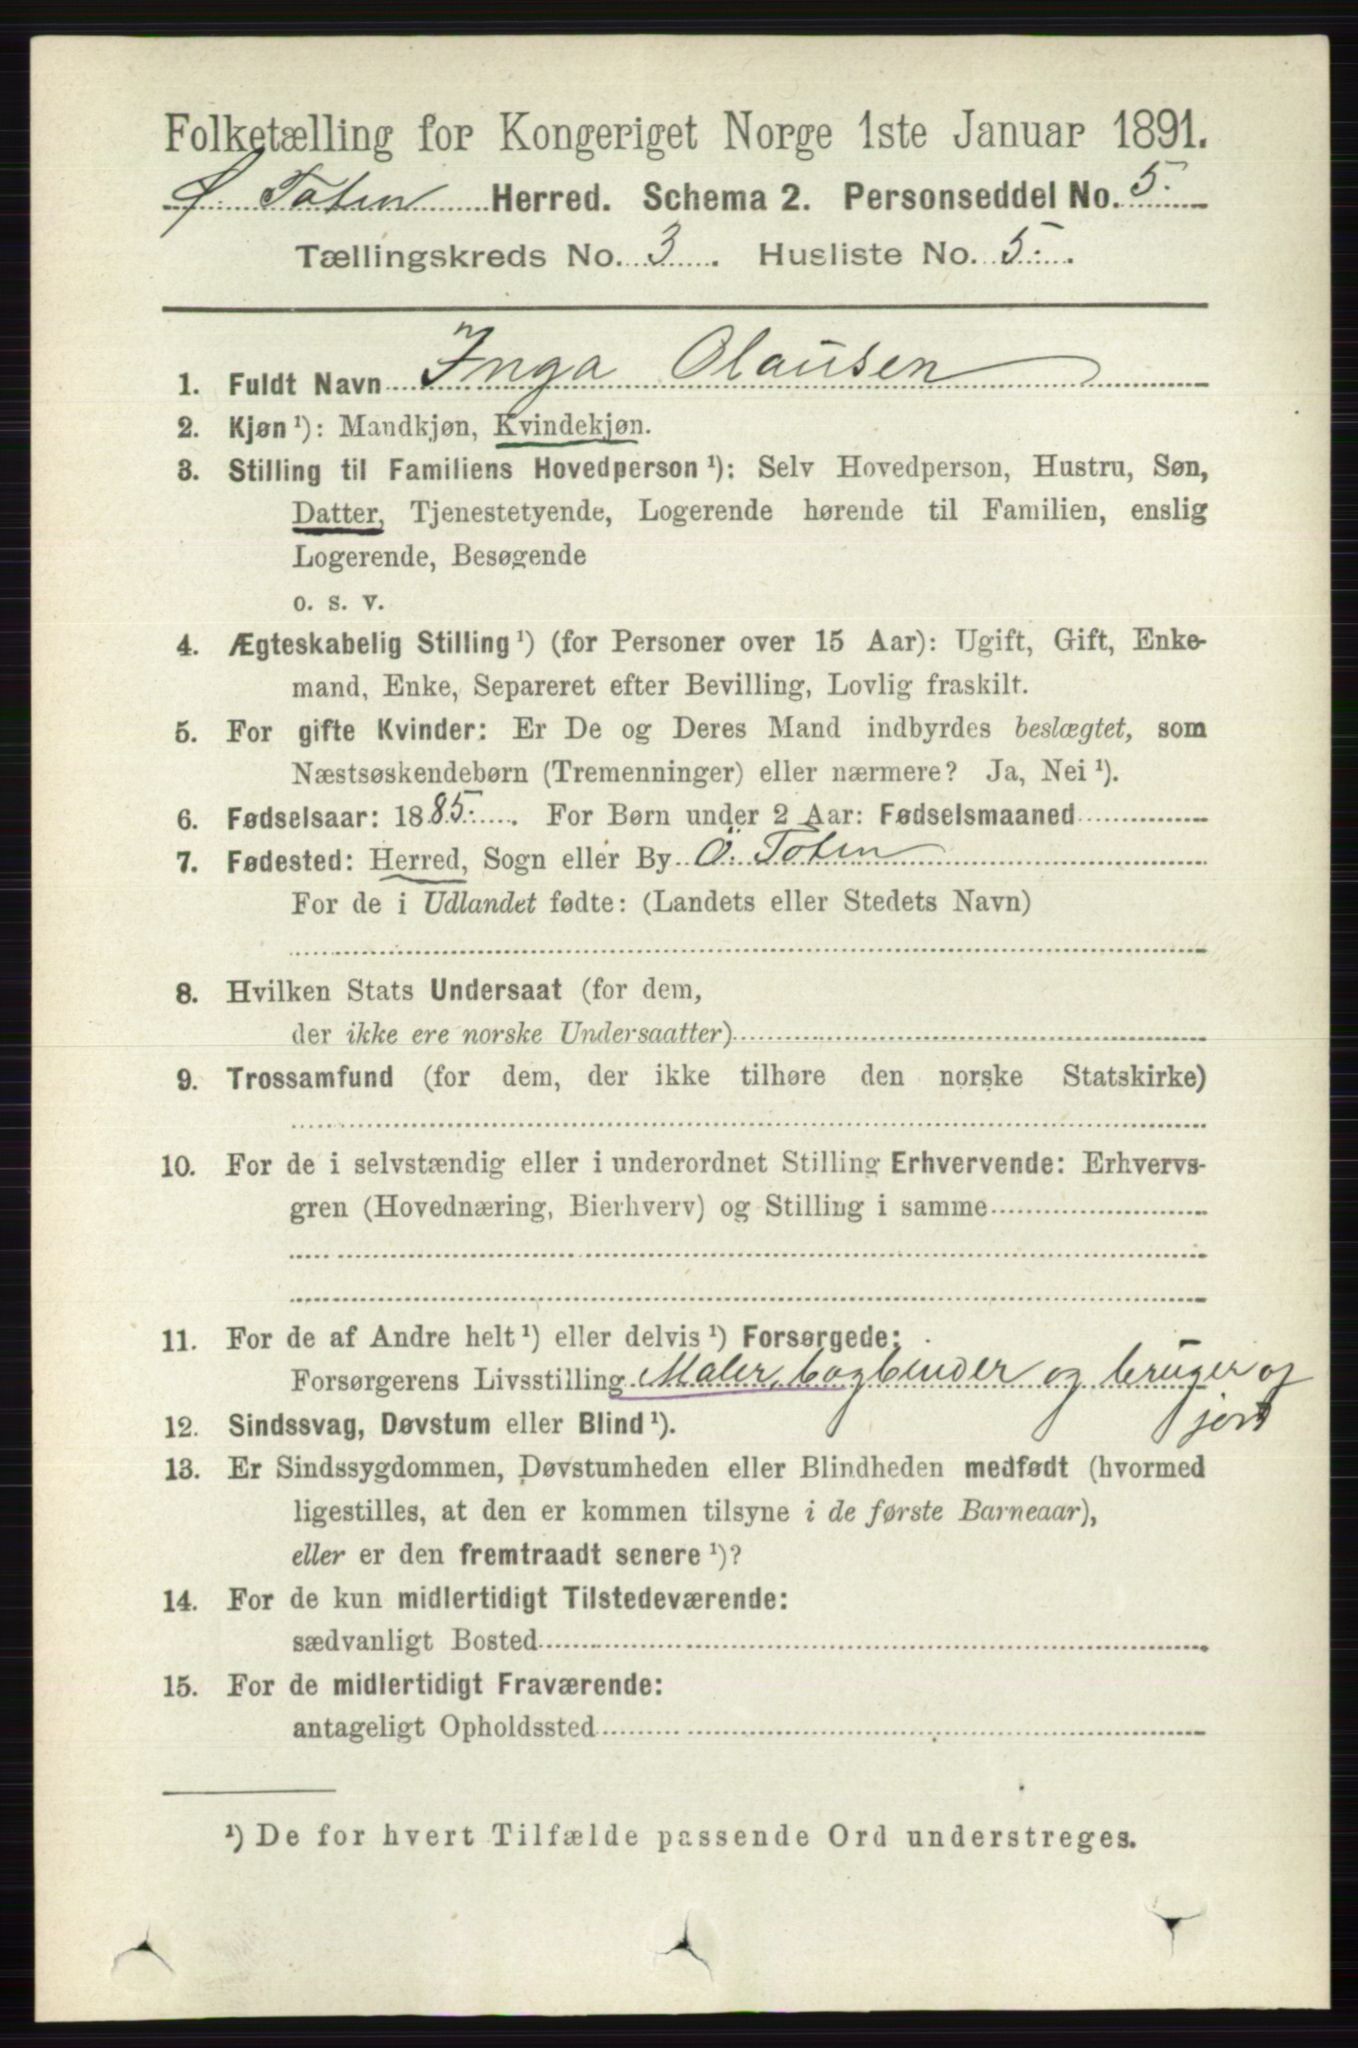 Folketælling for Kongeriget Norge 1ste Januar 1891.
Ø. Toten Herred. Schema 2. Personseddel No. 5.
Tællingskreds No. 3. Husliste No. 5.
1. Fuldt Navn Inga Olausen
2. Kjøn ¹): Mandkjøn, Kvindekjøn.
3. Stilling til Familiens Hovedperson ¹): Selv Hovedperson, Hustru, Søn,
Datter, Tjenestetyende, Logerende hørende til Familien, enslig
Logerende, Besøgende
o. s. v.
4. Ægteskabelig Stilling ¹) (for Personer over 15 Aar): Ugift, Gift, Enke-
mand, Enke, Separeret efter Bevilling, Lovlig fraskilt.
5. For gifte Kvinder: Er De og Deres Mand indbyrdes beslægtet, som
Næstsøskendebørn (Tremenninger) eller nærmere? Ja, Nei ¹).
6. Fødselsaar: 1885. For Børn under 2 Aar: Fødselsmaaned
7. Fødested: Herred, Sogn eller By Ö. Toten
For de i Udlandet fødte: (Landets eller Stedets Navn)
8. Hvilken Stats Undersaat (for dem,
der ikke ere norske Undersaatter)
9. Trossamfund (for dem, der ikke tilhøre den norske Statskirke)
10. For de i selvstændig eller i underordnet Stilling Erhvervende: Erhvervs-
gren (Hovednæring, Bierhverv) og Stilling i samme
11. For de af Andre helt ¹) eller delvis ¹) Forsørgede:
Forsørgerens Livsstilling Maler, bogbinder og bruger og
jord
12. Sindssvag, Døvstum eller Blind ¹).
13. Er Sindssygdommen, Døvstumheden eller Blindheden medfødt (hvormed
ligestilles, at den er kommen tilsyne i de første Barneaar),
eller er den fremtraadt senere ¹)?
14. For de kun midlertidigt Tilstedeværende:
sædvanligt Bosted
15. For de midlertidigt Fraværende:
antageligt Opholdssted
¹) De for hvert Tilfælde passende Ord understreges.